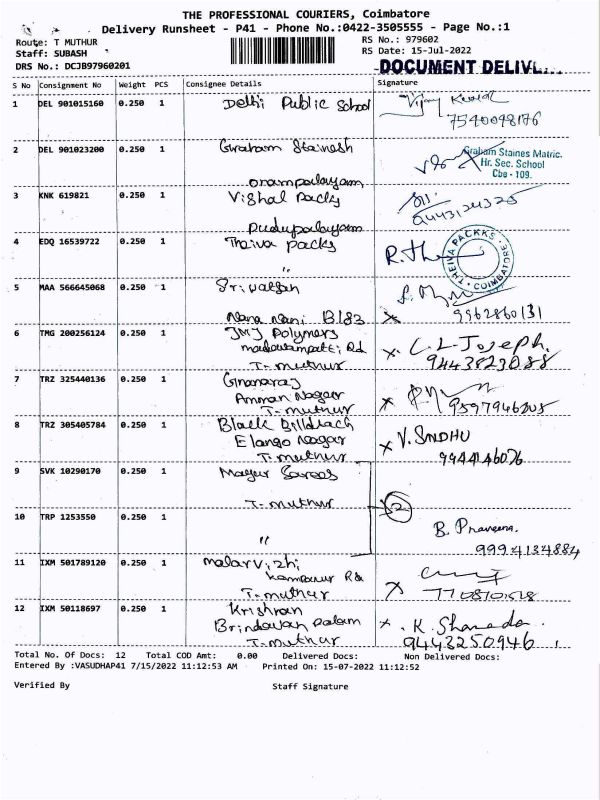 THE PROFESSIONAL COURIERS, Coimbatore
Delivery Runsheet - P41 - Phone No.:0422-3505555 - Page No.:1
Route: T MUTHUR
RS No.: 979602
Staff: SUBASH
RS Date: 15-Jul-2022
DRS No.: DCJB97960201
DOCUMENT DELIV
S No Consignment No Weight PCS Consignee Details Signature
1 DEL 901015160 0.250 1 Delhi Public School
7540098176
2 DEL 901023200 0.250 1 Graham Stainesh
Graham Staines Matric.
Hr. Sec. School
Cbe - 109.
orampalayam
3 KNK 619821 0.250 1 Vishal Packs
9443124325
Pudupalayam
4 EDQ 16539722 0.250 1 Theiva packs
R.Th
THEIVA PACKKS COIMBATORE
"
5 MAA 566645068 0.250 1 Srivatsan
Nana Nani B183
9942860131
6 TMG 200256124 0.250 1 JMJ Polymers
madawampatti Rd
x. C. L Joseph.
T-muthur
9443823088
7 TRZ 325440136 0.250 1 Gnanaraj
Amman Nagar
x
9597946205
T-muthur
8 TRZ 305405784 0.250 1 Black Billdrach
Elango Nagar
x V. SNDHU
T-muthur
9944146076
9 SVK 10290170 0.250 1 Mayur Sarees
T-muthur
2
10 TRP 1253550 0.250 1
"
B. Praveena.
9994134884
11 IXM 501789120 0.250 1 malarvizhi
Rd
x
T-muthur
7708101518
12 IXM 50118697 0.250 1 Krishnan
Brindavan palam
x. K. Sharada.
T-muthur
9443250946
Total No. Of Docs: 12 Total COD Amt: 0.00 Delivered Docs: Non Delivered Docs:
Entered By :VASUDHAP41 7/15/2022 11:12:53 AM Printed On: 15-07-2022 11:12:52
Verified By Staff Signature